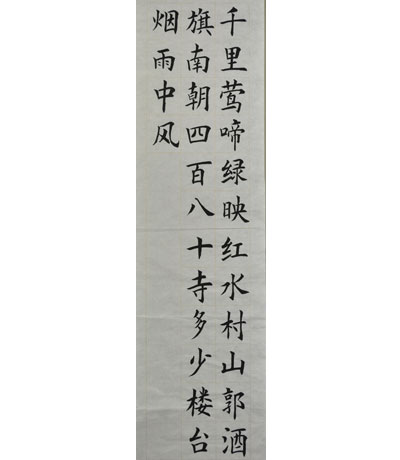 千里莺啼绿映红水村山郭酒
旗南朝四百八十寺多少楼台
烟雨中风